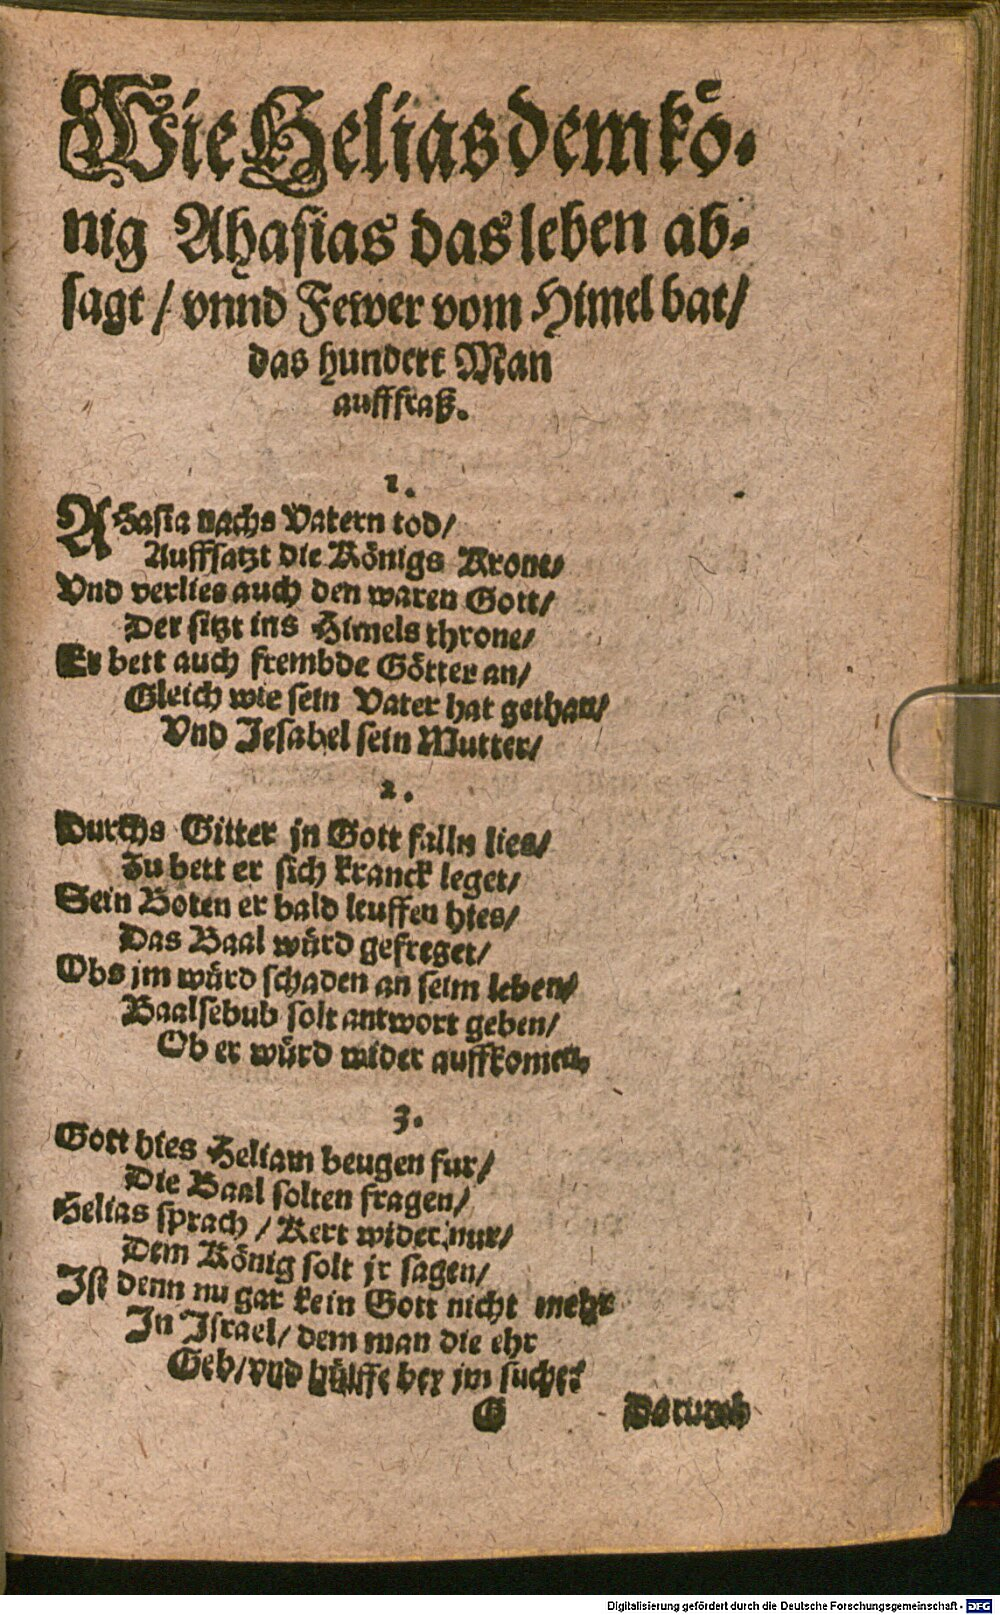 Wie Helias dem kö-
nig Ahasias das leben ab-
sagt / vnnd Fewer vom Himel bat /
das hundert Man
aufffraß.
1.
AHasia nachs Vatern tod /
Auffsatzt die Königs Krone /
Vnd verlies auch den waren Gott /
Der sitzt ins Himels throne /
Er bett auch frembde Götter an /
Gleich wie sein Vater hat gethan /
Vnd Jesabel sein Mutter /
2.
Durchs Gitter jn Gott falln lies /
Zu bett er sich kranck leget /
Sein Boten er bald leuffen hies /
Das Baal würd gefreget /
Obs jm würd schaden an seim leben /
Baalsebub solt antwort geben /
Ob er würd wider auffkomen.
3.
Gott hies Heliam beugen fur /
Die Baal solten fragen /
Helias sprach / Kert wider nur /
Dem König solt jr sagen /
Ist denn nu gar kein Gott nicht mehr
In Israel / dem man die ehr
Geb / vnd hülffe bey jm suchet
G Darumb
Digitalisierung gefördert durch die Deutsche Forschungsgemeinschaft - DFG